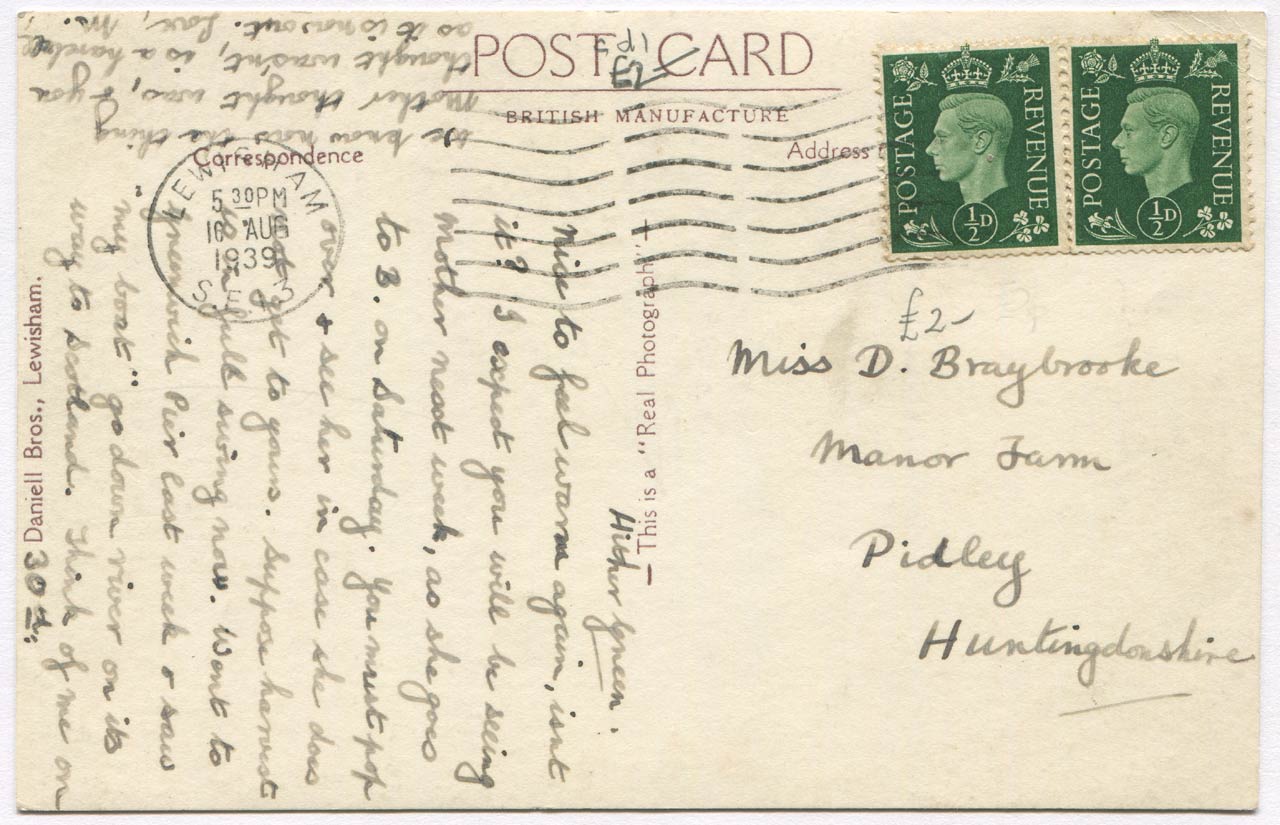 POST CARD
BRITISH MANUFACTURE
Correspondence
Address
POSTAGE REVENUE
½D
POSTAGE REVENUE
½D
LEWISHAM
5 30PM
10 AUG
1939
S.E.13
£2-
Miss D. Braybrooke
Manor Farm
Pidley
Huntingdonshire
Hither Green.
Nice to feel warm again, isnt
it? I expect you will be seeing
Mother next week, as she goes
to B. on Saturday. You must pop
over & see her in case she does
not get to yours. Suppose harvest
in full swing now. Went to
Greenwich Pier last week & saw
"my boat" go down river on its
way to Scotland. Think of me on
30th.
We know now the thing
Mother thought was, & you
thought wasn't, is a
as it is now out. Love, M.
This is a "Real Photograph"
Daniell Bros., Lewisham.